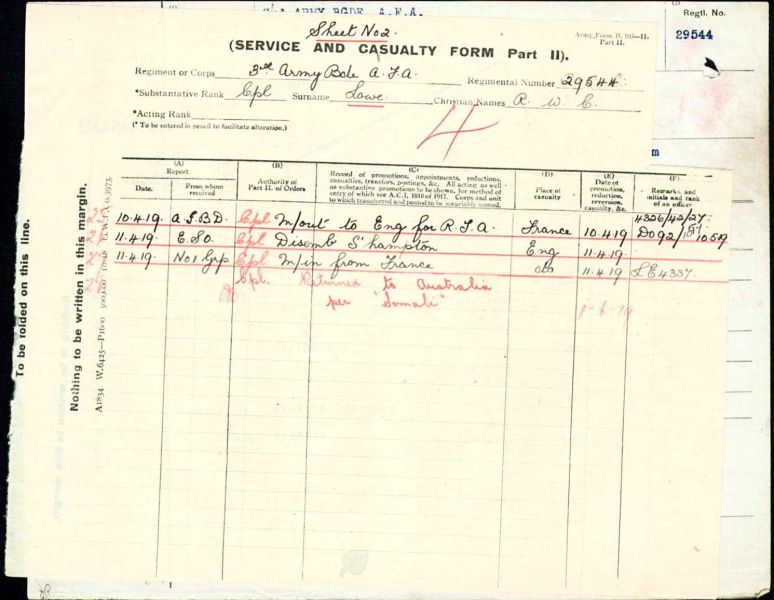 3rd ARMY BGDE. A.F.A.
Regtl. No.
29544
Sheet No 2.
Army Form B. 103—II.
Part II.
(SERVICE AND CASUALTY FORM Part II).
Regiment or Corps 3rd Army Bde A.F.A. Regimental Number 29544
*Substantative Rank Cpl Surname Lowe Christian Names R. W. C.
*Acting Rank
(* To be entered in pencil to facilitate alteration.)
4
(A) (B) (C) (D) (E) (F)
Report
Date. From whom received
Authority of Part II. of Orders
Record of promotions, appointments, reductions, casualties, transfers, postings, &c. All acting as well as substantive promotions to be shown, for method of entry of which see A.C.I. 1816 of 1917. Corps and unit to which transferred and posted to be invariably named.
Place of casualty
Date of promotion, reduction, reversion, casualty, &c.
Remarks, and initials and rank of an officer
4326/42/27.
10.4.19. A.G.B.D. Cpl M/out to Eng for R.T.A. France 10.4.19 DO92/ 10.5.19
11.4.19. E.S.O. Cpl Disemb S'hampton Eng 11.4.19.
11.4.19 No 1 Grp Cpl M/in from France do 11.4.19 LE4337.
Cpl. Returned to Australia
per "Somali" 1-6-19
To be folded on this line.
Nothing to be written in this margin.
A1834 W.6425—P1600 500,000 10/18